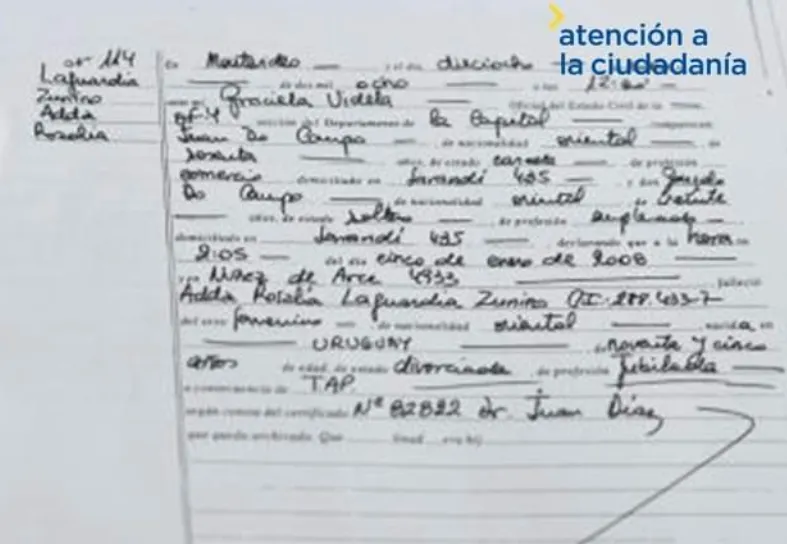 atención a
la ciudadanía
Nº 114
Laguardia
Zunino
Adda
Rosalia
En Montevideo y el día dieciocho
de dos mil ocho a las 12:00
Graciela Videla Oficial del Estado Civil de la
sección del Departamento de la Capital comparecen
Juan Do Campo de nacionalidad oriental de
sesenta años, de estado casado de profesión
comercio domiciliado en Sarandí 435 y don
Do Campo de nacionalidad oriental de veinte
años, de estado soltero de profesión empleado
domiciliado en Sarandí 435 declarando que a la hora
2:05 del día cinco de enero de 2008
en Nuñez de Arce 4933 falleció
Adda Rosalía Laguardia Zunino CI. 288.433-7
del sexo femenino de nacionalidad oriental nacida en
URUGUAY de noventa y cinco
años de edad, de estado divorciada de profesión Jubilada
a consecuencia de TAP.
según consta del certificado Nº 82822 dr. Juan Díaz
que queda archivado. Que